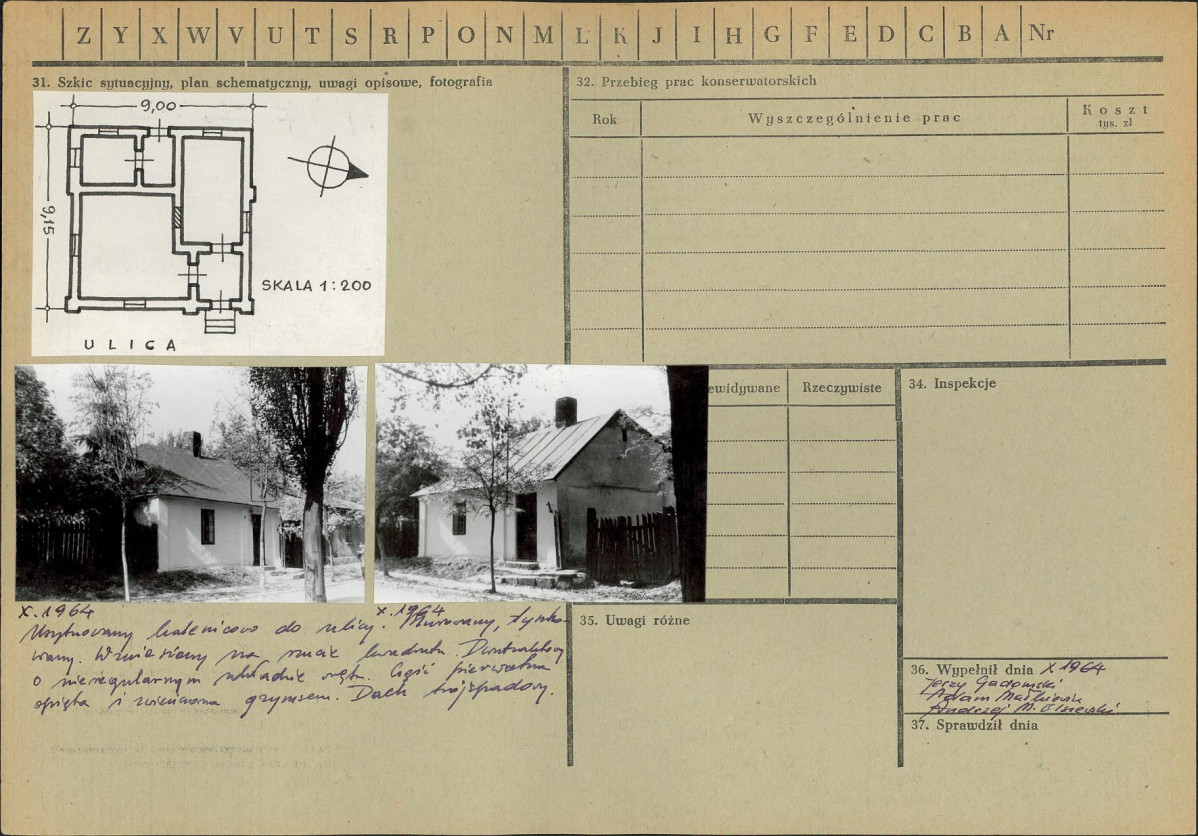 Z Y X W V U T S R P O N M L K J I H G F E D C B A Nr
31. Szkic sytuacyjny, plan schematyczny, uwagi opisowe, fotografia
9,00
9,15
SKALA 1:200
ULICA
X. 1964
X. 1964
Usytuowany kalenicowo do ulicy. Murowany, tynko-
wany. Wzniesiony na rzucie kwadratu. Dwutraktowy
o nieregularnym układzie wnętrz. Część pierwotna
opięta i zwieńczona gzymsem. Dach trójspadowy.
32. Przebieg prac konserwatorskich
Rok
Wyszczególnienie prac
Koszt
tys. zł
ewidywane
Rzeczywiste
34. Inspekcje
35. Uwagi różne
36. Wypełnił dnia X 1964
Jerzy Gadomski
Adam Małkiewicz
Andrzej M. Olszewski
37. Sprawdził dnia